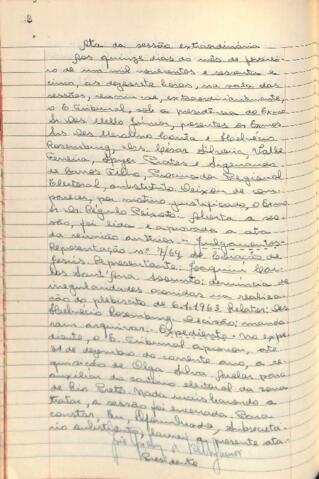 8
Ata da sessão extraordinária
Aos quinze dias do mês de feverei-
ro de um mil novecentos e sessenta e
cinco, às dezesete horas, na sala das
sessões, reuniu-se, extraordinariamente,
o E. Tribunal, sob a presidência do Exmo
Sr. Des. Mello Júnior, presentes os Exmos
Srs. Des. Merolino Corrêa e Helvécio
Rosenburg, drs. César Silveira, Valle
Ferreira, Prates e Sigismundo
de Barros Filho, Procurador Regional
Eleitoral, substituto. Deixou de com-
parecer, por motivo justificado, o Exmo
Sr. Dr. Régulo Peixoto. Aberta a ses-
são, foi lida e aprovada a ata
da reunião anterior. - Julgamentos -
Representação nº 7/64 de Conceição de
Representante: Joaquim Car-
los Sant'Ana. Assunto: denúncia de
irregularidades ocorridas na realiza-
ção do plebiscito de 6.1.1963. Relator: Des.
Helvécio Rosenburg. Decisão: manda-
ram arquivar. Expediente - No expe-
diente, o E. Tribunal aprovou, até
31 de dezembro do corrente ano, a re-
quisição de Olga Silva para
auxiliar do cartório eleitoral da zona
de Rio Preto. Nada mais havendo a
tratar, a sessão foi encerrada. Para
constar, Eu, secretá-
rio substituto, lavrei a presente ata.
Presidente